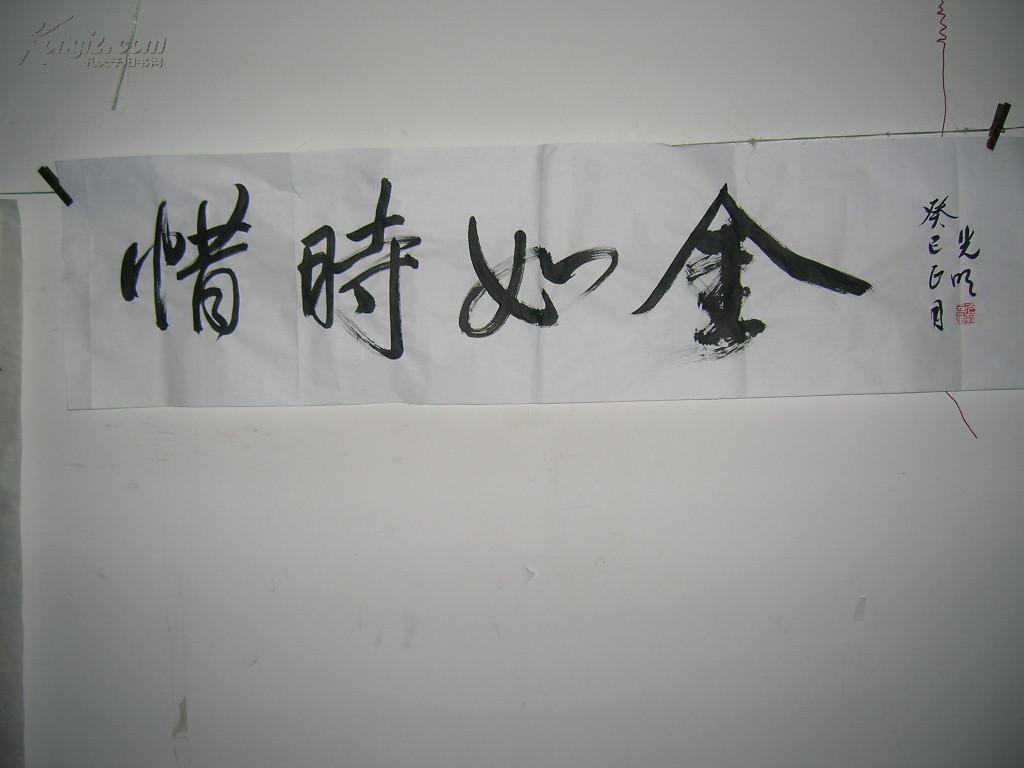 Kongfz.com
孔夫子旧书网
惜時如金
癸巳正月
光明